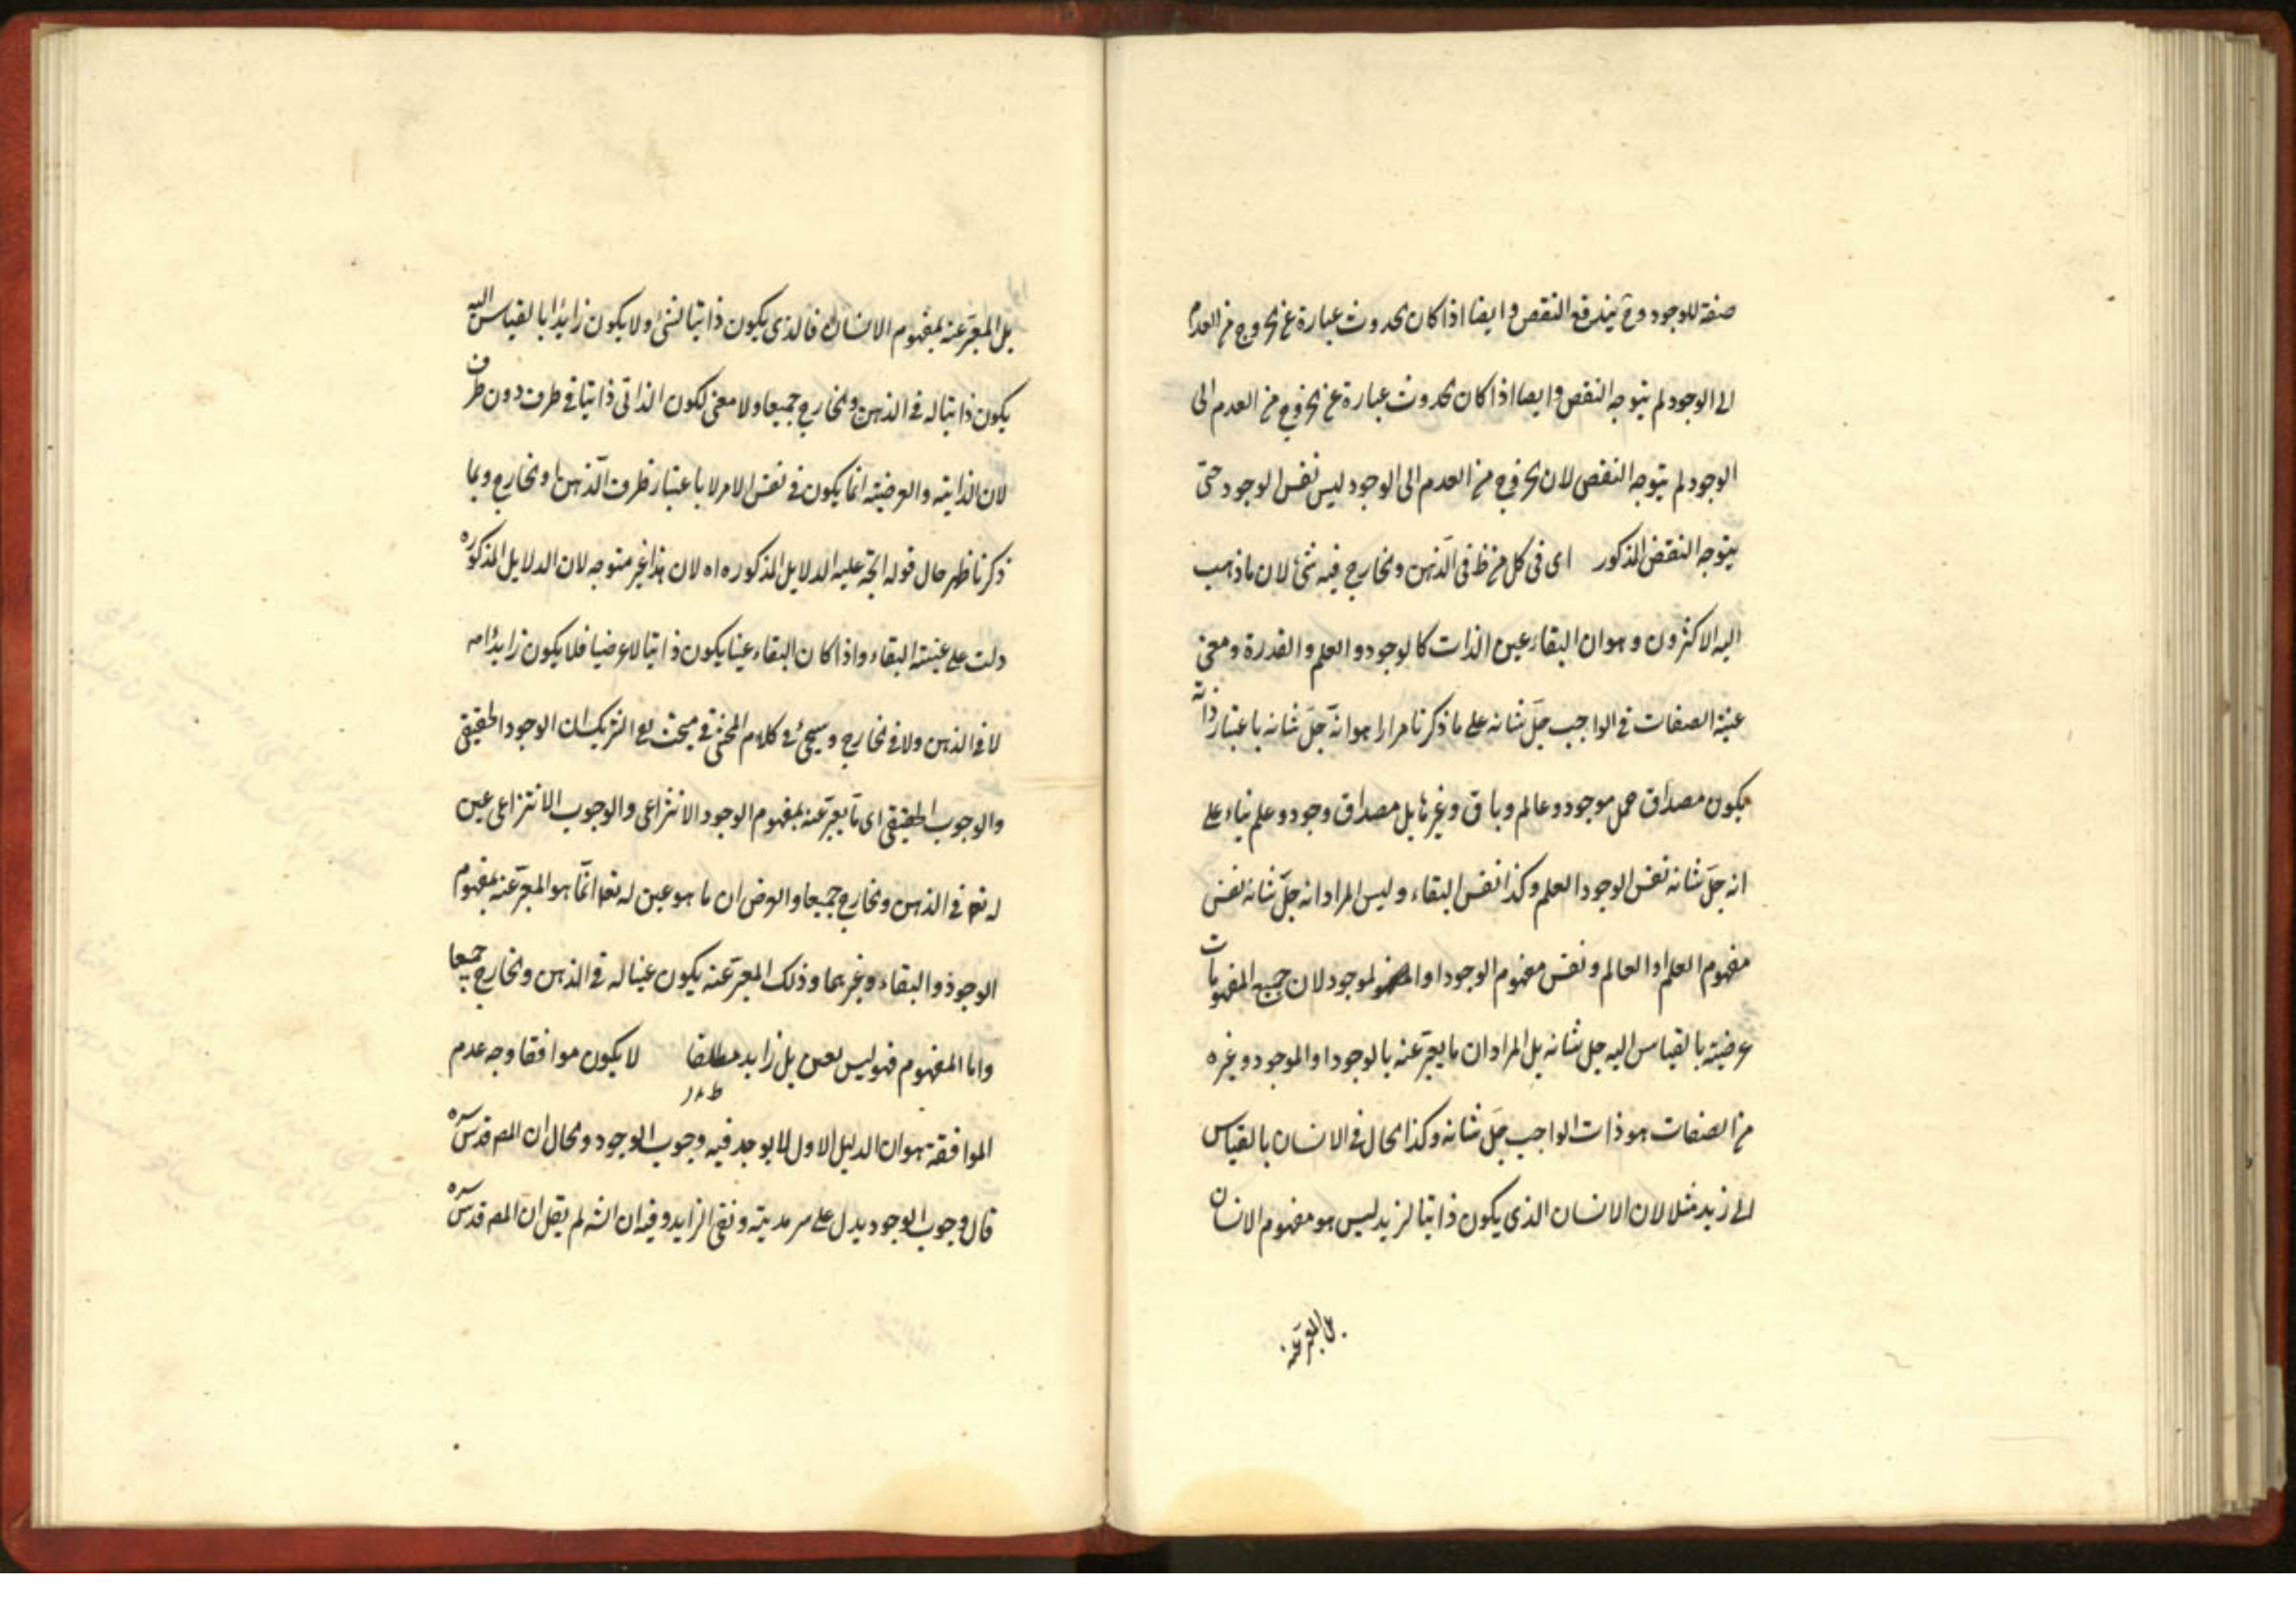 صفة للوجود وح يندفع النقض وايضا اذا كان الحدوث عبارة عن الخروج من العدم
الى الوجود لم يتوجه النقض وايضا اذا كان الحدوث عبارة عن الخروج من العدم الى
الوجود لم يتوجه النقض لان الخروج من العدم الى الوجود ليس نفس الوجود حتى
يتوجه النقض المذكور اى فى كل من ظ فى الذهن والخارج فيه شئ لان ما ذهب
اليه الاكثرون وهو ان البقاء عين الذات كالوجود والعلم والقدرة ومعنى
عينية الصفات فى الواجب جل شانه على ما ذكرنا مرارا هو انه جل شانه باعتبار ذاته
يكون مصداق حمل موجود وعالم وباق وغيرها بل مصداق وجود وعلم بناء على
انه جل شانه نفس الوجود العلم وكذا نفس البقاء وليس المراد انه جل شانه نفس
مفهوم العلم او العالم ونفس مفهوم الوجود او الموجود لان جميع المفهومات
عرضية بالقياس اليه جل شانه بل المراد ان ما يعبر عنه بالوجود او الموجود وغيره
من الصفات هو ذات الواجب جل شانه وكذا الحال فى الانسان بالقياس
الى زيد مثلا لان الانسان الذى يكون ذاتيا لزيد ليس هو مفهوم الانسان
بل المعبر عنه
بل المعبر عنه بمفهوم الانسان فالذى يكون ذاتيا لشئ ولا يكون زايدا بالقياس اليه
يكون ذاتيا له فى الذهن والخارج جميعا ولا معنى لكون الذاتى ذاتيا فى ظرف دون ظرف
لان الذاتية والعرضية انما يكون فى نفس الامر لا باعتبار ظرف الذهن والخارج وبما
ذكرنا ظهر حال قوله اتجه عليه الدلايل المذكوره اه لان هذا غير متوجه لان الدلايل المذكوره
دلت على عينية البقاء واذا كان البقاء عينا يكون ذاتيا لا عرضيا فلا يكون زايدا اصه
لا فى الذهن ولا فى الخارج وسيجئ فى كلام المحشى فى مبحث نفى الشريك ان الوجود الحقيقى
والوجوب الحقيقى اى ما يعبر عنه بمفهوم الوجود الانتزاعى والوجوب الانتزاعى عين
له تعا فى الذهن والخارج جميعا والغرض ان ما هو عين له تعا انما هو المعبر عنه بمفهوم
الوجود والبقاء وغيرهما وذلك المعبر عنه يكون عينا له فى الذهن والخارج جميعا
واما المفهوم فهو ليس بعين بل زايد مطلقا لا يكون موافقا وجه عدم
الموافقة هو ان الدليل الاول لا يوجد فيه وجوب الوجود والحال ان المص قدس سره
قال وجوب الوجود يدل على سرمديته ونفى الزايد وفيه ان الشه لم يقل ان المص قدس سره